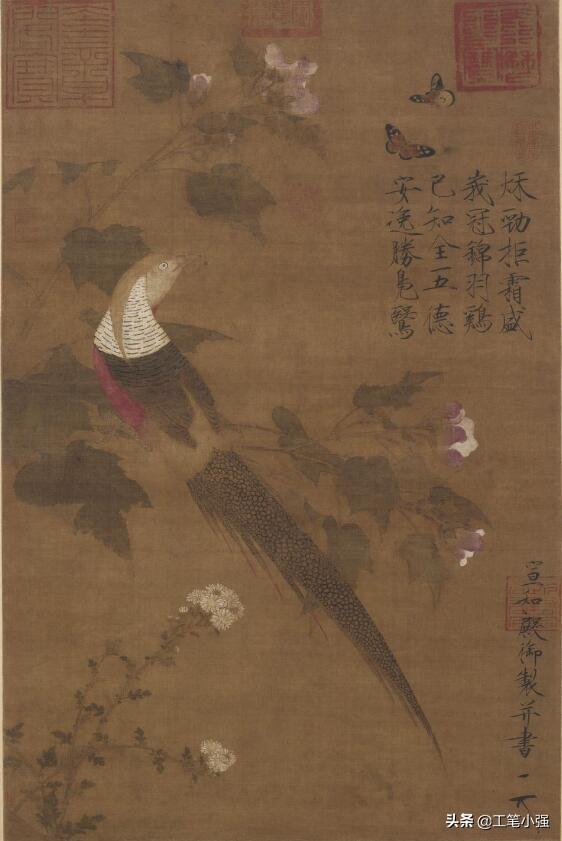 秋勁拒霜盛
峩冠錦羽鷄
已知全五德
安逸勝鳧鷖
宣和殿御製并書
头条 @工笔小强